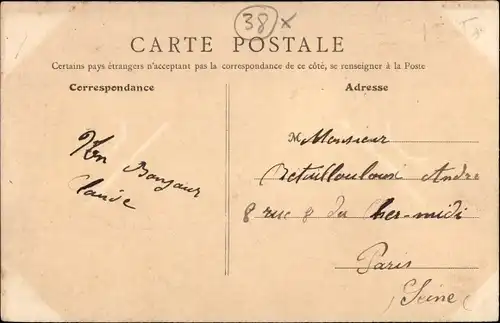 38 x
CARTE POSTALE
Certains pays étrangers n'acceptant pas la correspondance de ce côté, se renseigner à la Poste
Correspondance
Adresse
Bonjour
Claude
M Monsieur
André
8 rue du Cher-midi
Paris
(Seine)